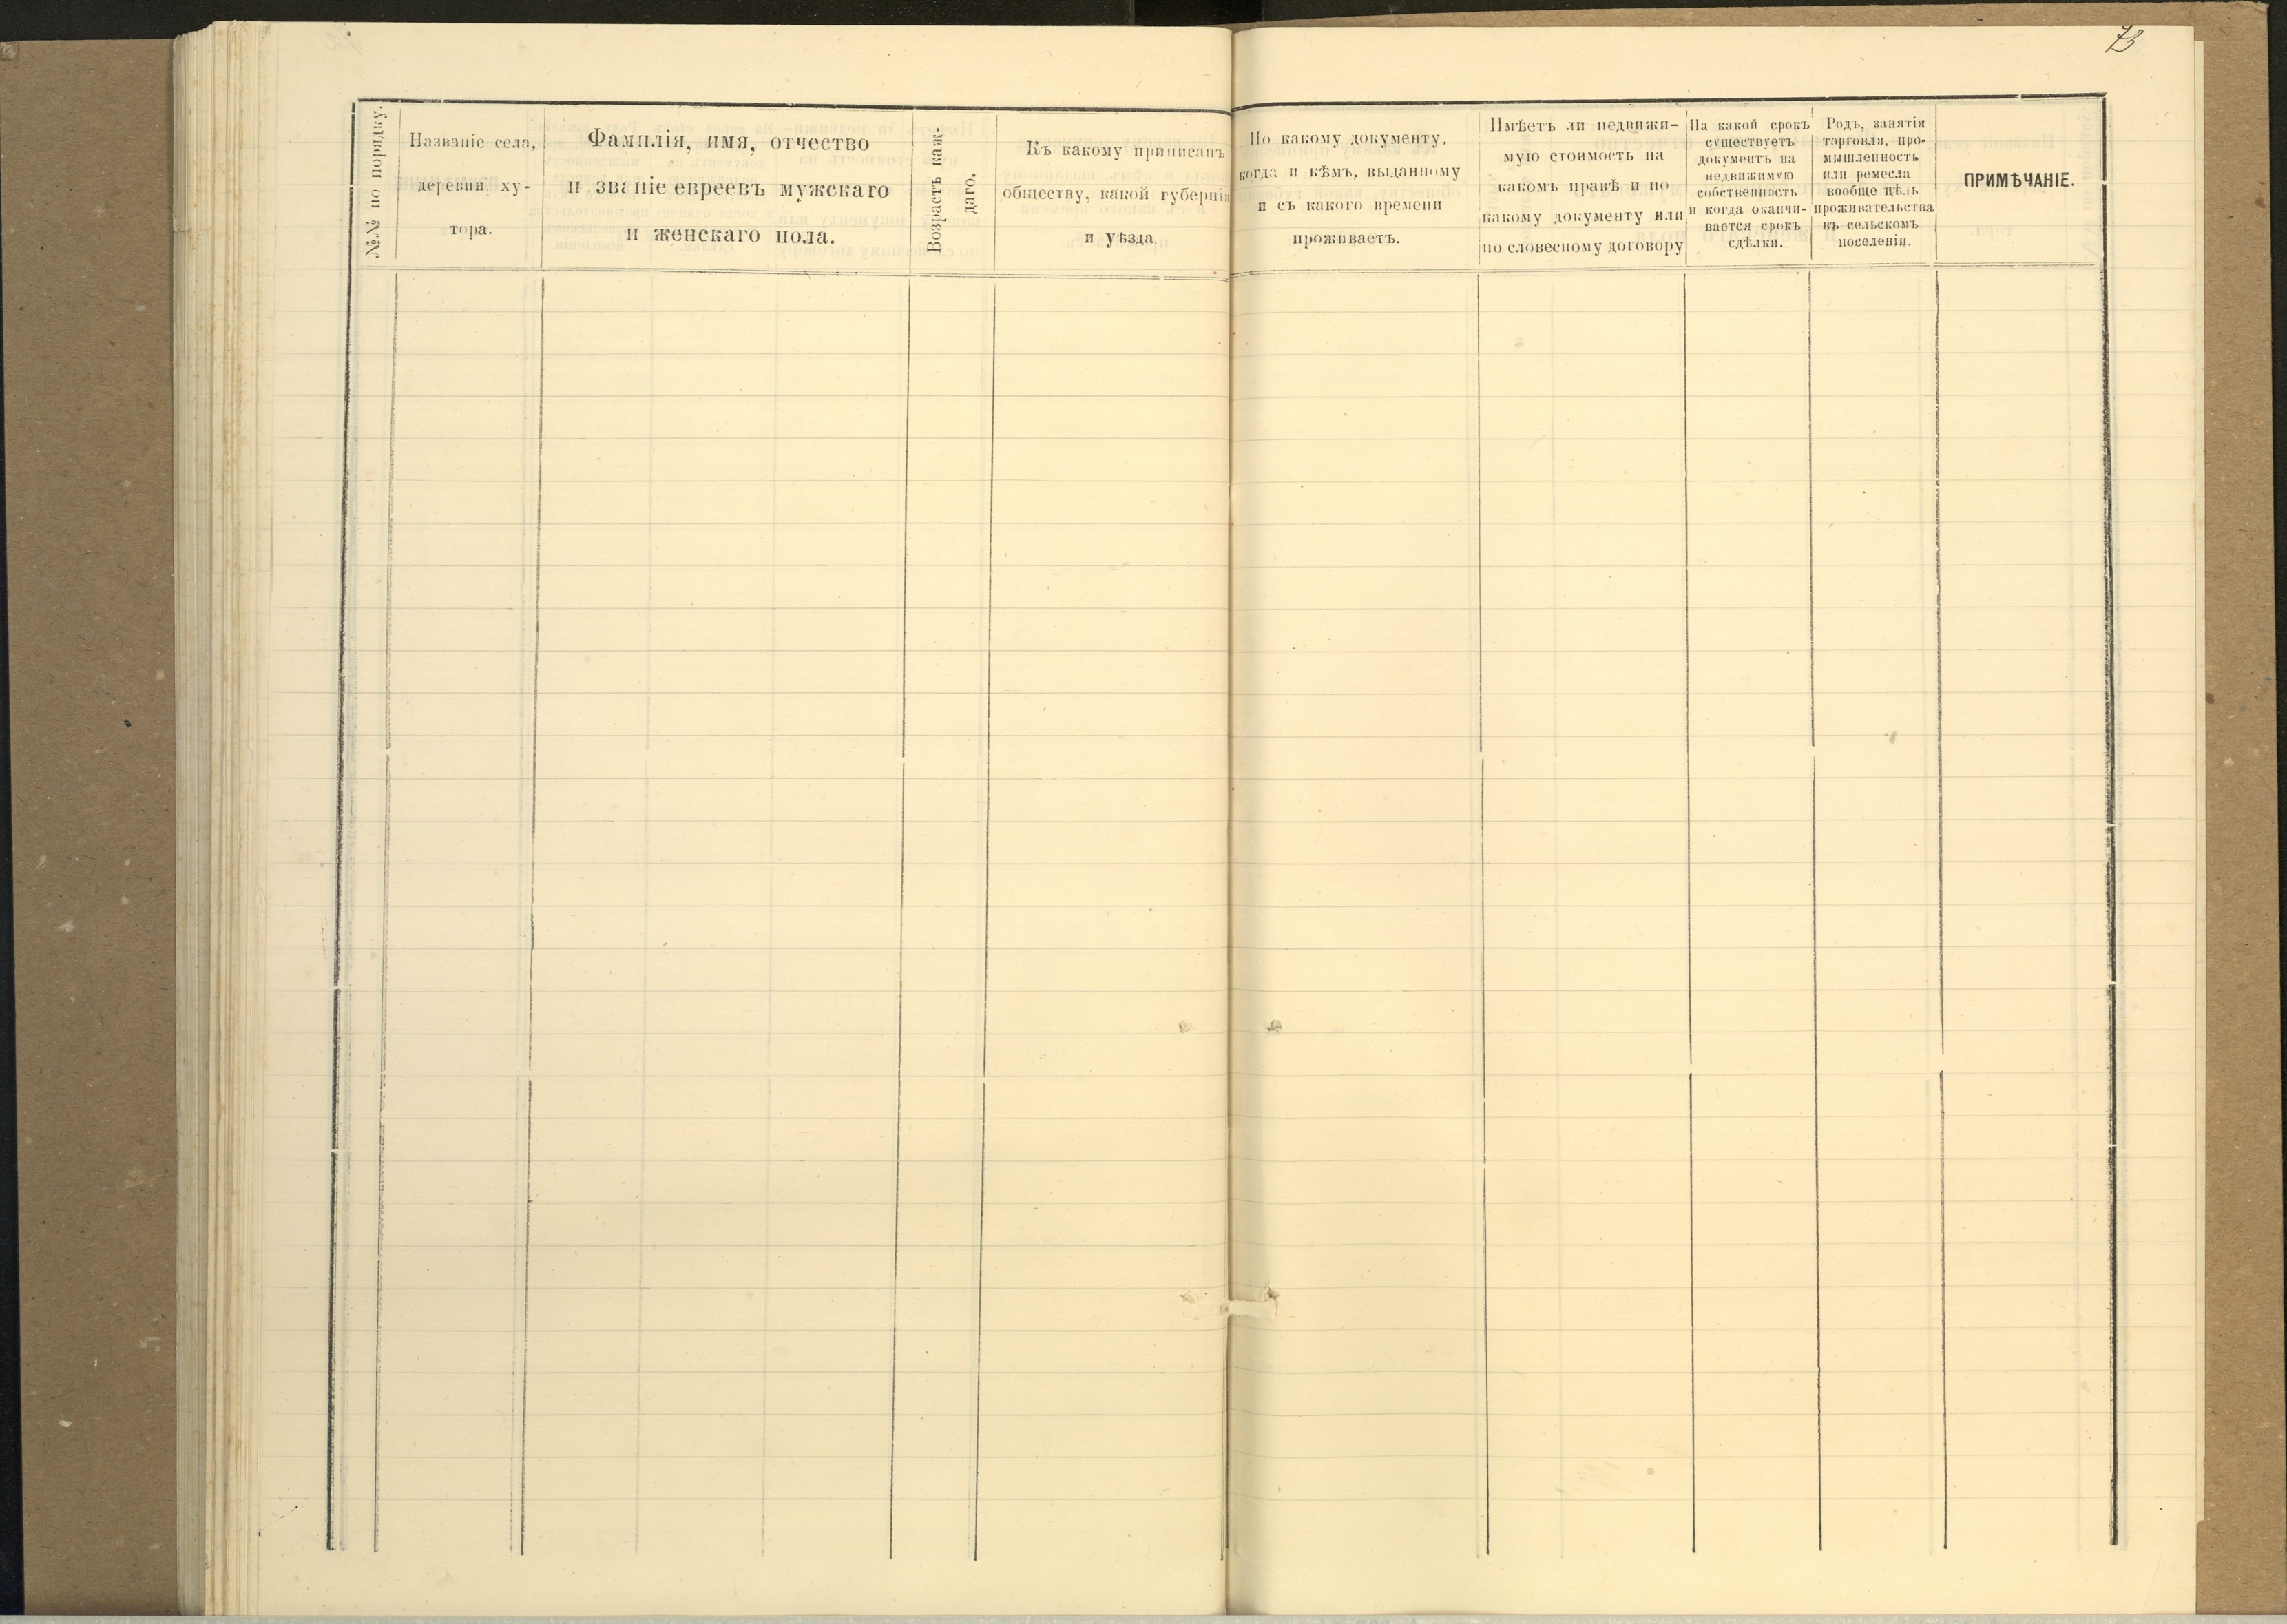 73
№№ по порядку.
Названіе села,
деревни, ху-
тора.
Фамилія, имя, отчество
и званіе евреевъ мужскаго
и женскаго пола.
Возрастъ каж-
даго.
Къ какому приписанъ
обществу, какой губерніи
и уѣзда
По какому документу,
когда и кѣмъ, выданному
и съ какого времени
проживаетъ.
Имѣетъ ли недвижи-
мую стоимость на
какомъ правѣ и по
какому документу или
по словесному договору
На какой срокъ
существуетъ
документъ на
недвижимую
собственность
и когда оканчи-
вается срокъ
сдѣлки.
Родъ, занятія
торговля, про-
мышленность
или ремесла
вообще цѣль
проживательства
въ сельскомъ
поселеніи.
ПРИМѢЧАНІЕ.